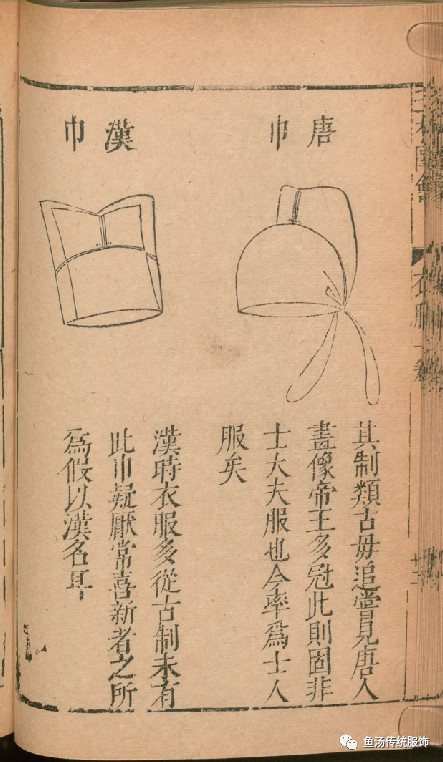 唐巾
其制類古毋追嘗見唐人
畫像帝王多冠此則固非
士大夫服也今率為士人
服矣
漢巾
漢時衣服多從古制未有
此巾疑厭常喜新者之所
為假以漢名耳
鱼汤传统服饰